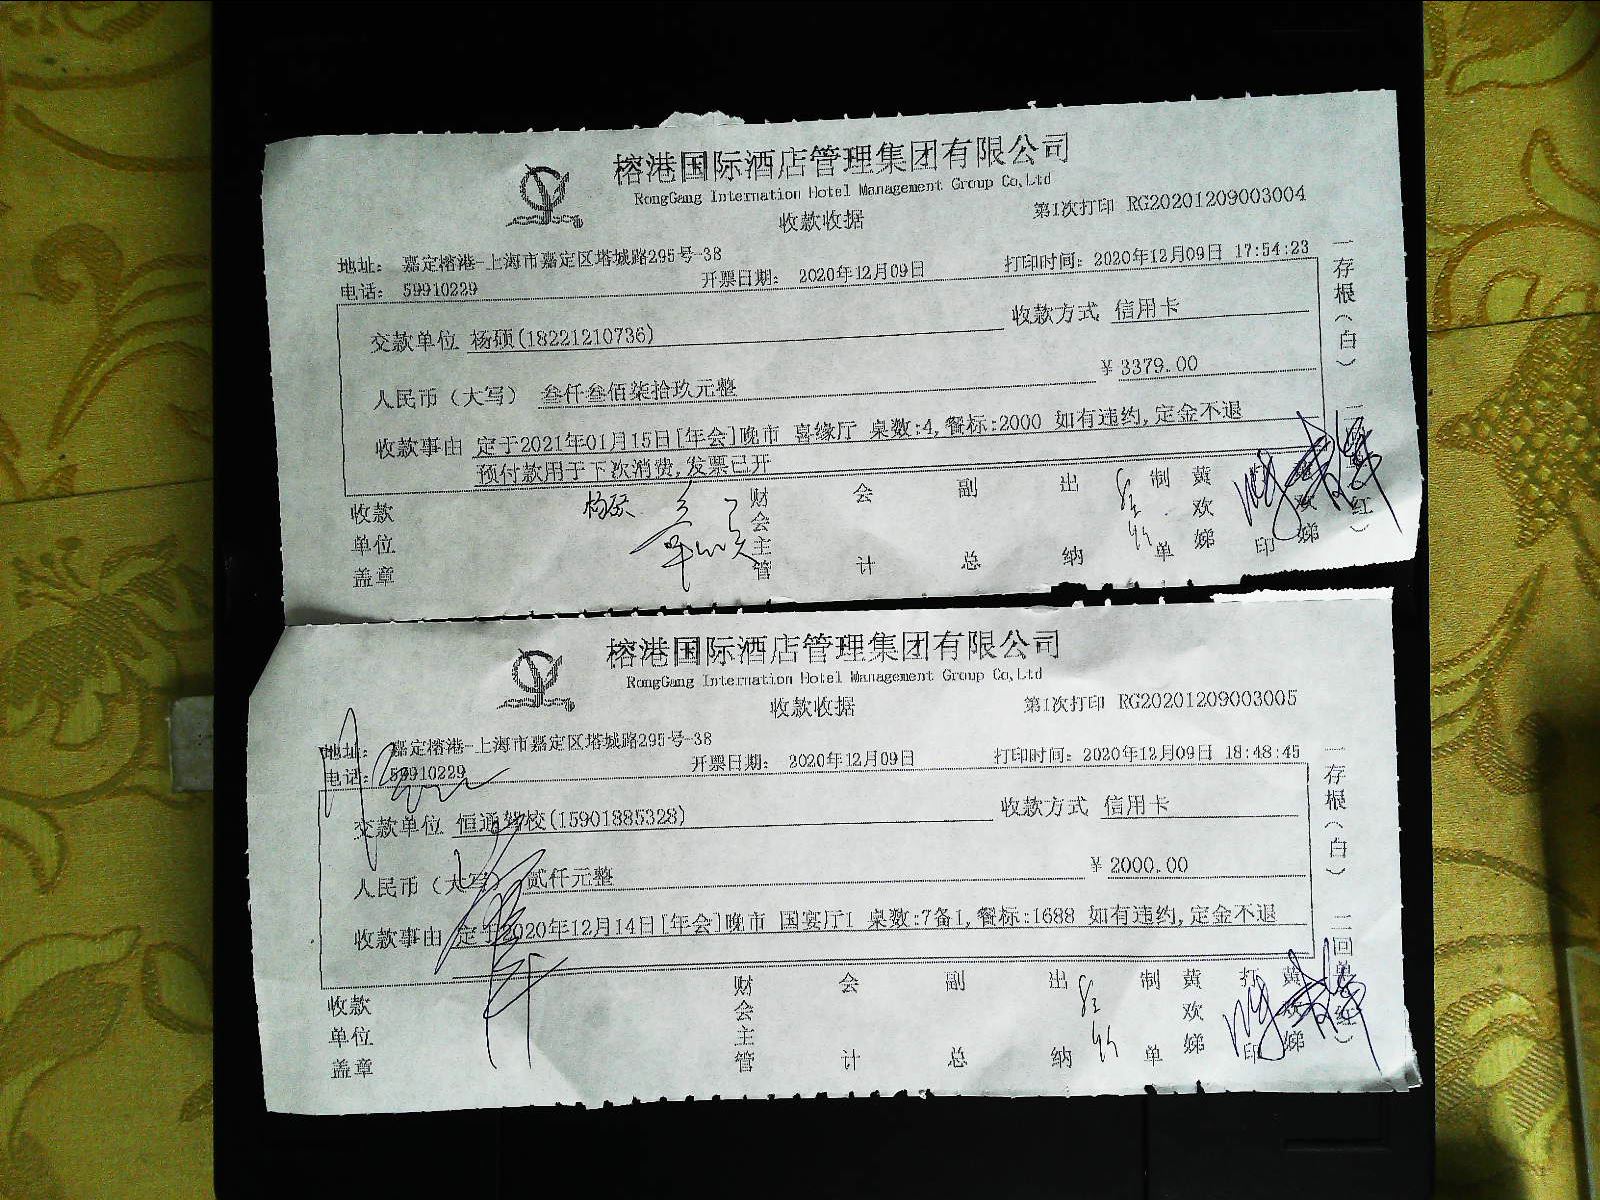 榕港国际酒店管理集团有限公司
RongGang Internation Hotel Management Group Co,Ltd
收款收据
第1次打印 RG20201209003004
地址： 嘉定榕港-上海市嘉定区塔城路295号-38
电话： 59910229
开票日期： 2020年12月09日
打印时间：2020年12月09日 17:54:23
交款单位 杨硕(18221210736)
收款方式 信用卡
人民币（大写） 叁仟叁佰柒拾玖元整
￥3379.00
收款事由 定于2021年01月15日[年会]晚市 喜缘厅 桌数:4,餐标:2000 如有违约,定金不退
预付款用于下次消费,发票已开
收款单位盖章
杨硕
财会主管
会计
副总
出纳
制单
黄欢娣
印
欢娣
一存根（白）
红）
榕港国际酒店管理集团有限公司
RongGang Internation Hotel Management Group Co,Ltd
收款收据
第1次打印 RG20201209003005
地址： 嘉定榕港-上海市嘉定区塔城路295号-38
电话： 59910229
开票日期： 2020年12月09日
打印时间：2020年12月09日 18:48:45
交款单位 恒通驾校(15901885328)
收款方式 信用卡
人民币（大写） 贰仟元整
￥2000.00
收款事由 定于2020年12月14日[年会]晚市 国宴厅1 桌数:7备1,餐标:1688 如有违约,定金不退
收款单位盖章
财会主管
会计
副总
出纳
制单
黄欢娣
打印
黄欢娣
一存根（白）
二回单（红）